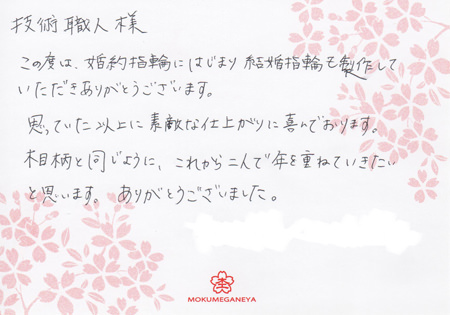 技術職人様
この度は、婚約指輪にはじまり結婚指輪も製作して
いただきありがとうございます。
思っていた以上に素敵な仕上がりに喜んでおります。
木目柄と同じように、これから二人で年を重ねていきたい
と思います。ありがとうございました。
MOKUMEGANEYA